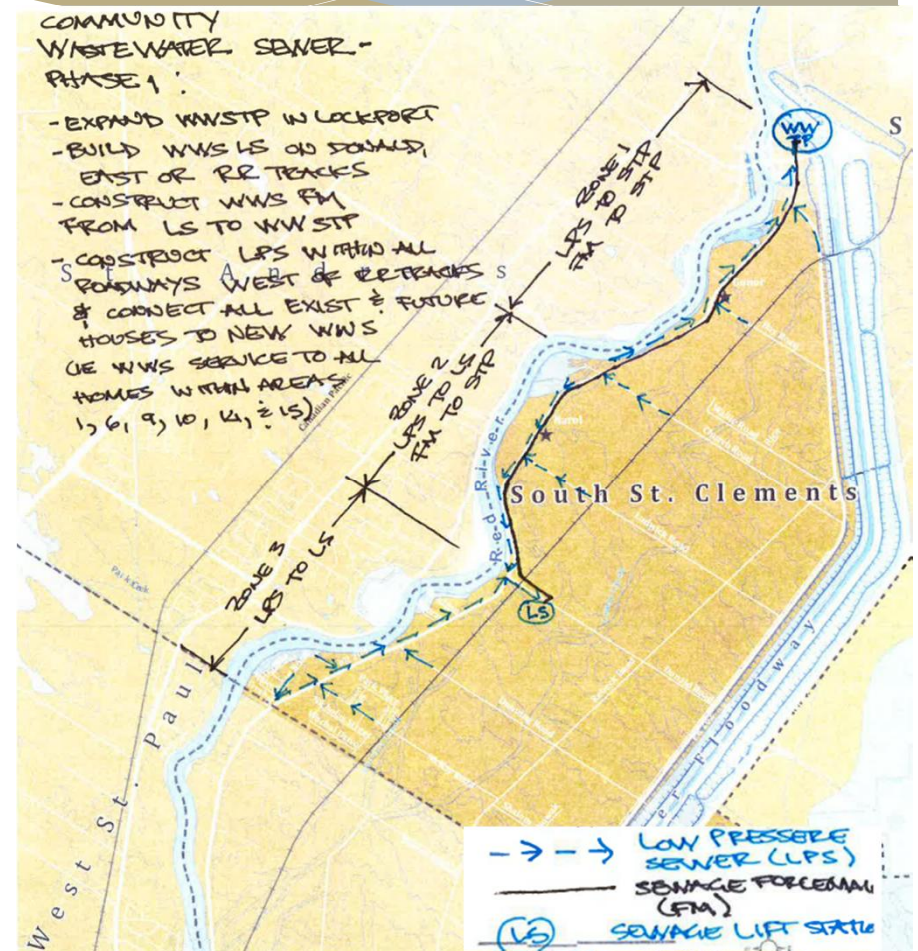 COMMUNITY
WASTEWATER SEWER -
PHASE 1 :
- EXPAND WWSTP IN LOCKPORT
- BUILD WWS LS ON DONALD,
EAST OF RR TRACKS
- CONSTRUCT WWS FM
FROM LS TO WWSTP
- CONSTRUCT LPS WITHIN ALL
ROADWAYS WEST OF RR TRACKS
& CONNECT ALL EXIST & FUTURE
HOUSES TO NEW WWS
(IE WWS SERVICE TO ALL
HOMES WITHIN AREAS
1, 6, 9, 10, 14, & 15)
ZONE 1
LPS TO STP
FM TO STP
WW
TP
S
ZONE 2
LPS TO LS
FM TO STP
ZONE 3
LPS TO LS
Canadian Pacific
Red River
South St. Clements
LS
West St. Paul
er Floodway
LOW PRESSERE
SEWER (LPS)
SEWAGE FORCEMAI
(FM)
LS SEWAGE LIFT STATIO